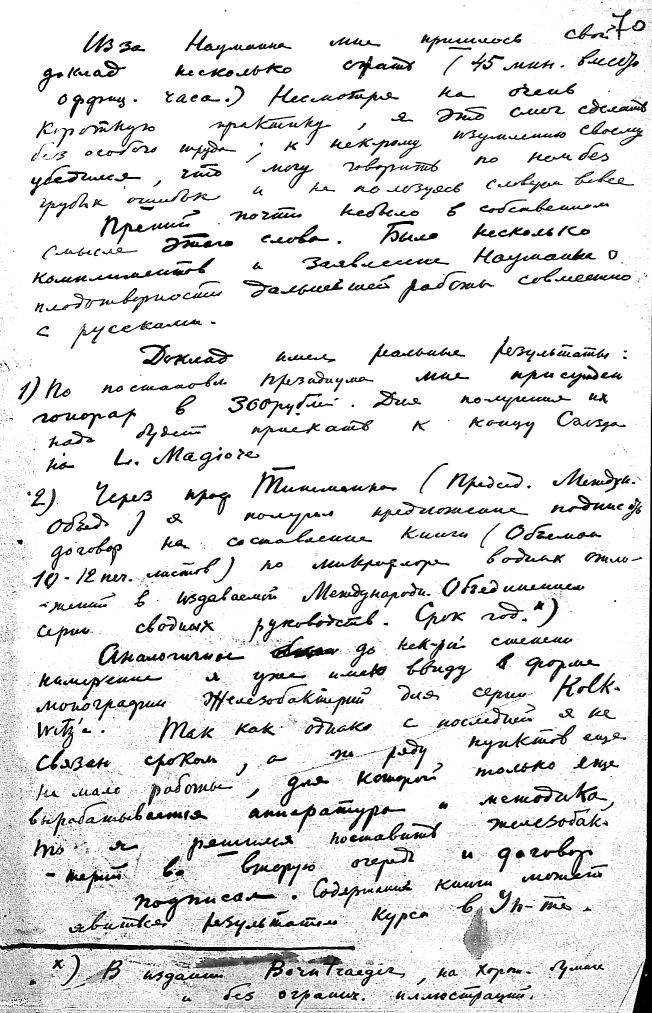 70
Из за Науманна мне пришлось свой
доклад несколько сжать (45 мин. вместо
оффиц. часа.) Несмотря на очень
короткую практику, я это смог сделать
без особого труда; к нек-рому изумлению своему
убедился, что могу говорить по нем без
грубых ошибок и не пользуясь словарем вовсе
Прений почти небыло в собственном
смысле этого слова. Было несколько
комплиментов и заявление Науманна о
плодотворности дальнейшей работы совместно
с русскими.
Доклад имел реальные результаты:
1) По постановл президиума мне присужден
гонорар в 360 рублей. Для получения их
надо будет приехать к концу Съезда
на L. Magiore
2) Через проф Тинеманна (Председ. Междун.
Объед) я получил предложение подписать
договор на составление книги (Объемом
10-12 печ. листов) по микрофлоре водных отло-
-жений в издаваемой Международн. Объединением
серии сводных руководств. Срок год.*)
Аналогичное до нек-рой степени
намерение я уже имел ввиду в форме
монографии Железобактерий для серии Kolk-
witz'a. Так как однако с последней я не
связан сроком, а по ряду пунктов еще
не мало работы, для которой только еще
вырабатывается аппаратура и методика,
то я решил поставить железобак-
-терий во вторую очередь и договор
подписал. Содержание книги может
явиться результатом курса в Ун-те.
*) В издании Borntraeger, на хорош. бумаге
и без огранич. иллюстраций.